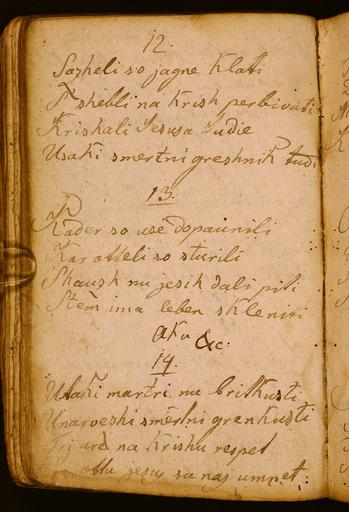 12.
Sazheli so jagne Klati
S' shebli na Krish perbivati
Krishali Jesusa Judie
Usaki smertni greshnik tudi
13.
Kader so use dopounili
Kar otteli so sturili
Shauzh mu jesih dali piti
Stem ima leben skleniti
Aku &c:
14.
Usaki martri, nu britkusti
Unaroezhi smertni grenkusti
Tri ure na Krishu respet
jesus sa nas umpet: